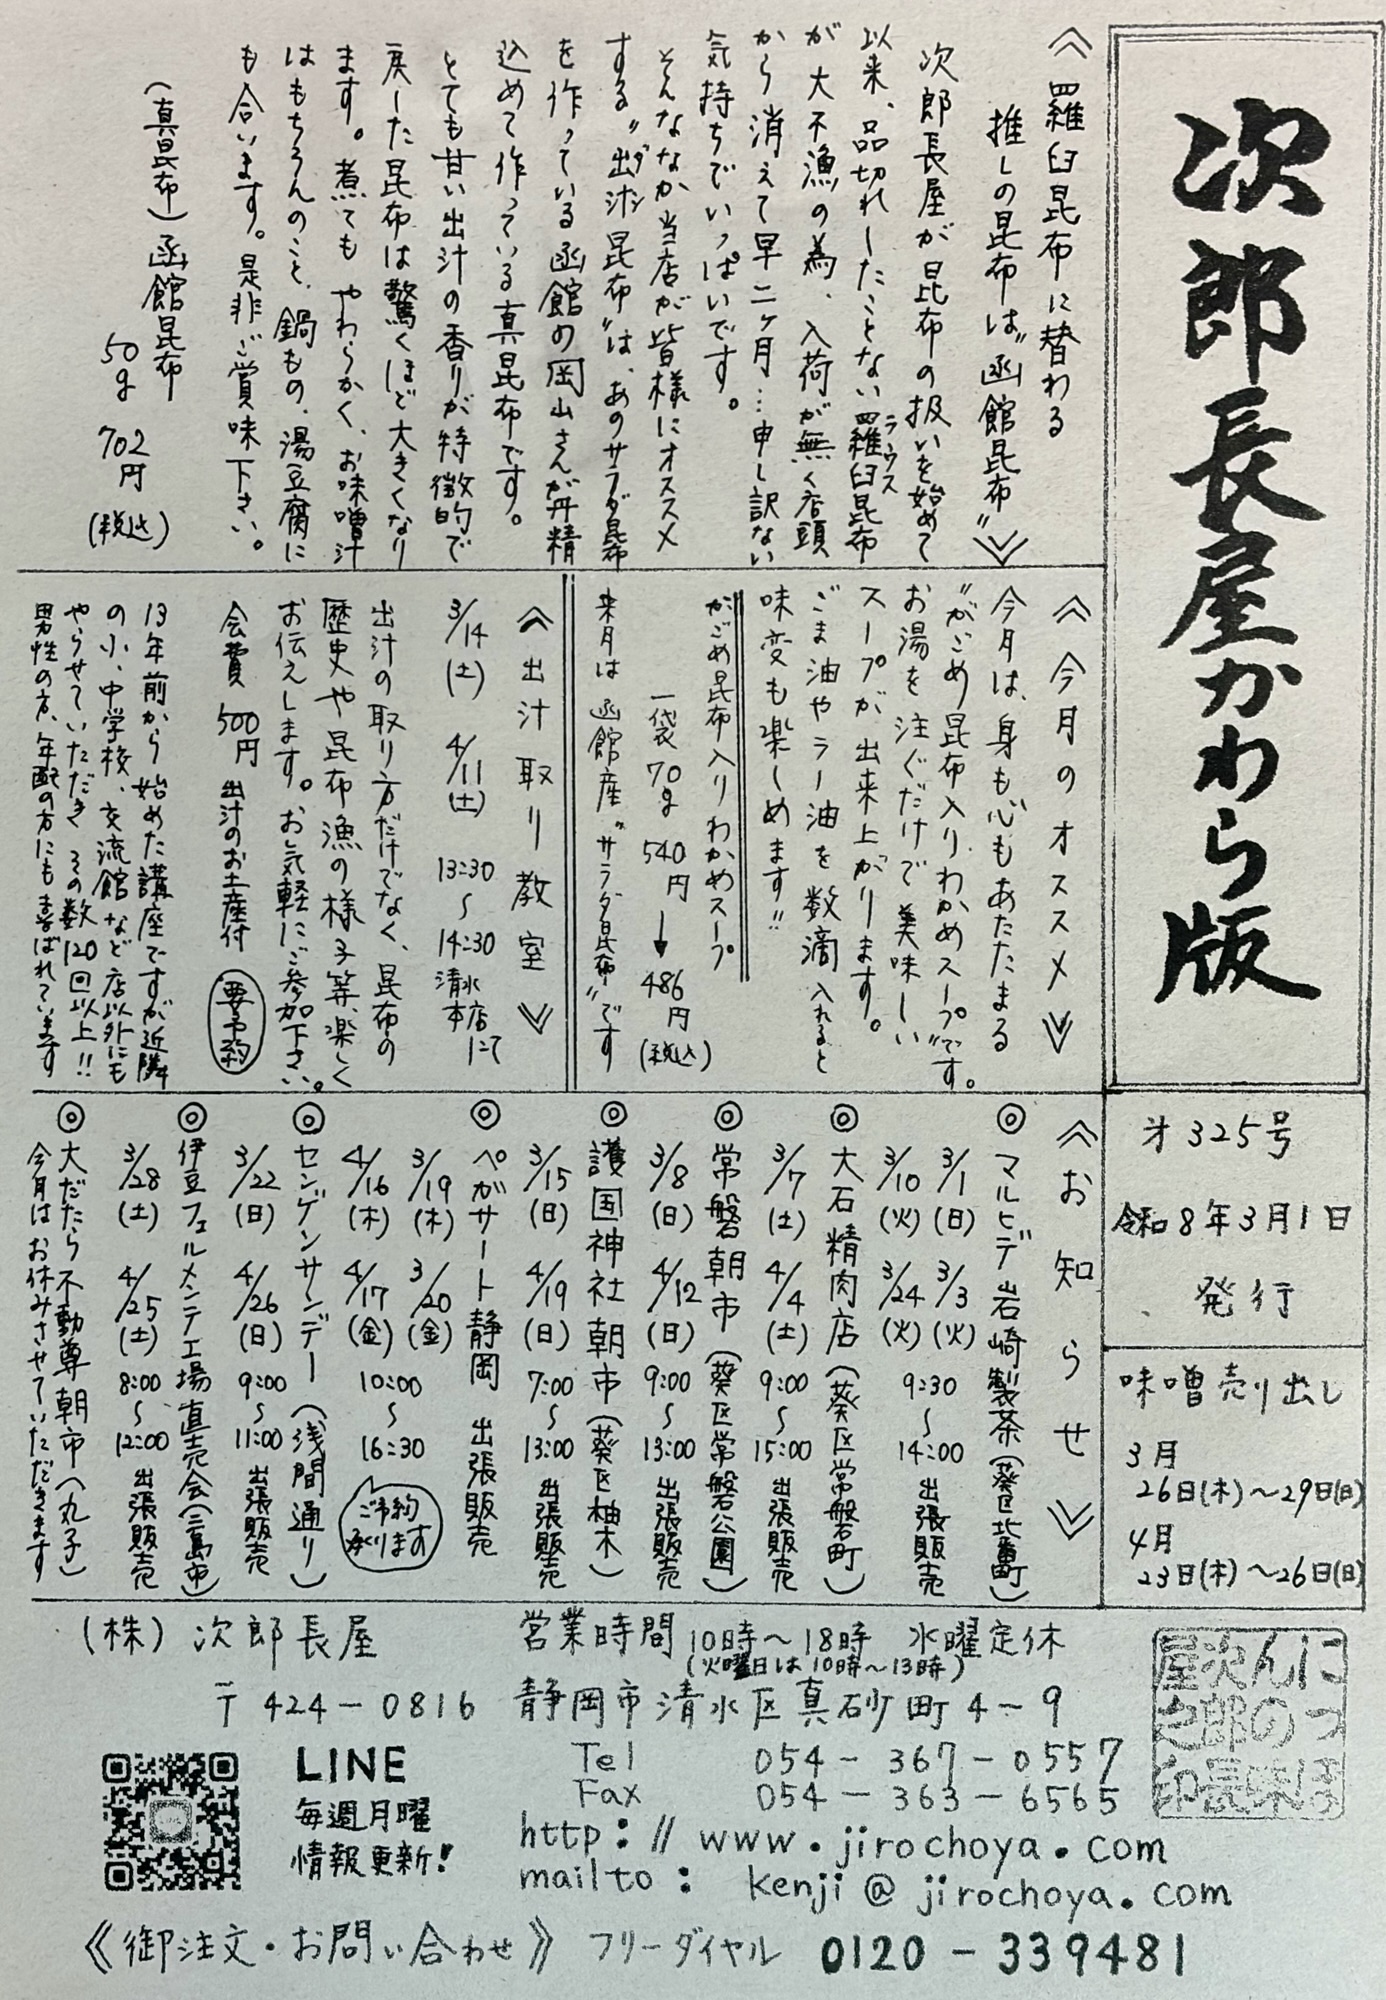 次郎長屋かわら版
才325号
令和8年3月1日
発行
味噌売り出し
3月
26日(木)～29日(日)
4月
23日(木)～26日(日)
《羅臼昆布に替わる
推しの昆布は〝函館昆布〟》
次郎長屋が昆布の扱いを始めて
以来、品切れしたことない羅臼昆布
ラウス
が大不漁の為、入荷が無く店頭
から消えて早二ヶ月…申し訳ない
気持ちでいっぱいです。
そんななか当店が皆様にオススメ
する〝出汁昆布〟は、あのサラダ昆布
ダシ
を作っている函館の岡山さんが丹精
込めて作っている真昆布です。
とても甘い出汁の香りが特徴的で
戻した昆布は驚くほど大きくなり
ます。煮てもやわらかく、お味噌汁
はもちろんのこと、鍋もの、湯豆腐に
も合います。是非ご賞味下さい。
(真昆布)函館昆布
50g 702円(税込)
《今月のオススメ》
今月は、身も心もあたたまる
〝がごめ昆布入りわかめスープ〟です。
お湯を注ぐだけで美味しい
スープが出来上がります。
ごま油やラー油を数滴入れると
味変も楽しめます!!
がごめ昆布入りわかめスープ
一袋70g 540円→486円(税込)
来月は函館産〝サラダ昆布〟です
《出汁取り教室》
3/14(土) 4/11(土) 13:30～14:30 清水本店にて
出汁の取り方だけでなく、昆布の
歴史や昆布漁の様子等、楽しく
お伝えします。お気軽にご参加下さい。
会費 500円 出汁のお土産付 要予約
13年前から始めた講座ですが近隣
の小、中学校、交流館など店以外にも
やらせていただき その数120回以上!!
男性の方、年配の方にも喜ばれています
《お知らせ》
◎マルヒデ岩崎製茶(葵区北番町)
3/1(日) 3/3(火)
3/10(火) 3/24(火) 9:30～14:00 出張販売
◎大石精肉店(葵区常磐町)
3/7(土) 4/4(土) 9:00～15:00 出張販売
◎常磐朝市(葵区常磐公園)
3/8(日) 4/12(日) 9:00～13:00 出張販売
◎護国神社朝市(葵区柚木)
3/15(日) 4/19(日) 7:00～13:00 出張販売
◎ぺがサート静岡 出張販売
3/19(木) 3/20(金)
4/16(木) 4/17(金) 10:00～16:30
ご予約
承ります
◎センゲンサンデー(浅間通り)
3/22(日) 4/26(日) 9:00～11:00 出張販売
◎伊豆フェルメンテ工場直売会(三島市)
3/28(土) 4/25(土) 8:00～12:00 出張販売
◎大だたら不動尊朝市(丸子)
今月はお休みさせていただきます
(株)次郎長屋 営業時間 10時～18時 水曜定休
(火曜日は10時～13時)
〒424-0816 静岡市清水区真砂町4-9
Tel 054-367-0557
Fax 054-363-6565
LINE
毎週月曜
情報更新!
http://www.jirochoya.com
mailto: kenji@jirochoya.com
《御注文・お問い合わせ》 フリーダイヤル 0120-339481